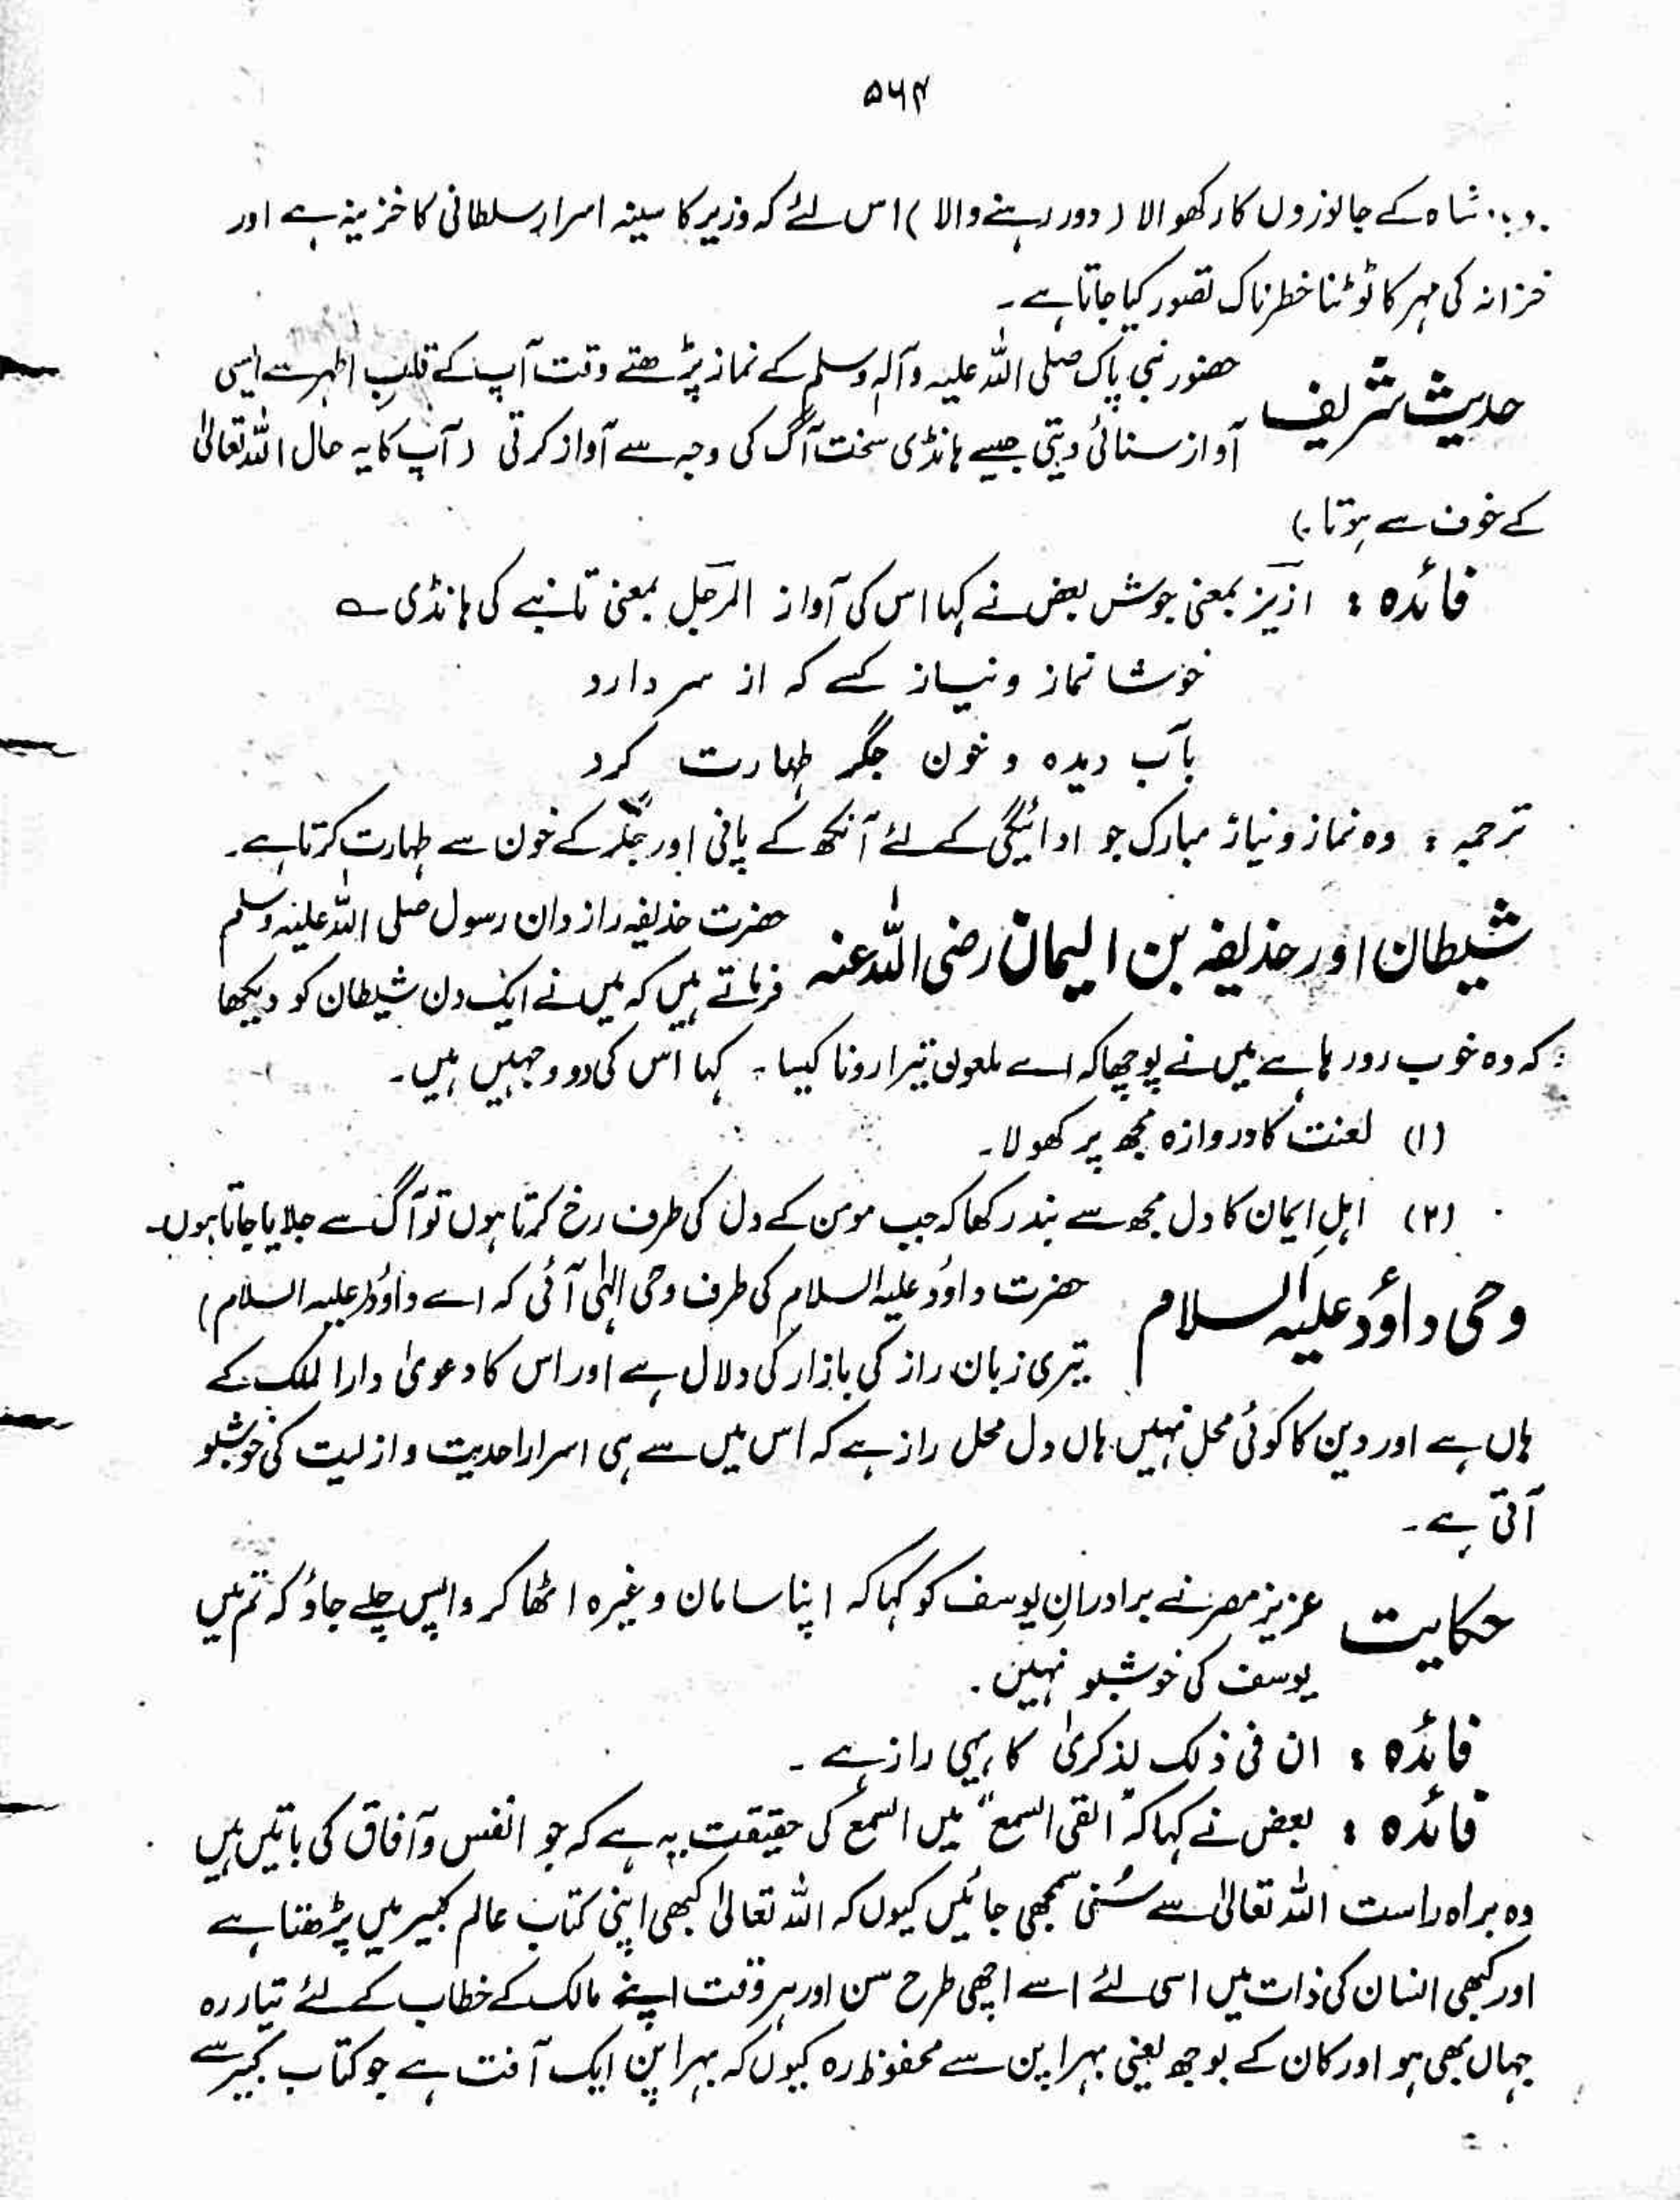 ۵۶۴
شاہ کے جانوروں کا رکھوالا ( دور رہنے والا ) اس لئے کہ وزیر کا سینہ اسرارِ سلطانی کا خزینہ ہے اور
خزانہ کی مہر کا ٹوٹنا خطرناک تصور کیا جاتا ہے ۔
حدیث شریف حضور نبی پاک صلی اللہ علیہ وآلہ وسلم کے نماز پڑھتے وقت آپ کے قلب اطہر سے ایسی
آواز سنائی دیتی جیسے ہانڈی سخت آگ کی وجہ سے آواز کرتی ( آپ کا یہ حال اللہ تعالیٰ
کے خوف سے ہوتا ۔)
فائدہ : ازیز بمعنی جوش بعض نے کہا اس کی آواز المرجل بمعنی تانبے کی ہانڈی ؎
خوشا نماز و نیاز کسے کہ از سر دارد
بآب دیدہ و خون جگر طہارت کرد
ترجمہ : وہ نماز و نیاز مبارک جو ادائیگی کے لئے آنکھ کے پانی اور جگر کے خون سے طہارت کرتا ہے ۔
شیطان اور حذیفہ بن الیمان رضی اللہ عنہ حضرت حذیفہ رازدان رسول صلی اللہ علیہ وسلم
فرماتے ہیں کہ میں نے ایک دن شیطان کو دیکھا
کہ وہ خوب رو رہا ہے میں نے پوچھا کہ اے ملعون تیرا رونا کیسا ۔ کہا اس کی دو وجہیں ہیں ۔
(۱) لعنت کا دروازہ مجھ پر کھولا ۔
(۲) اہلِ ایمان کا دل مجھ سے بند رکھا کہ جب مومن کے دل کی طرف رخ کرتا ہوں تو آگ سے جلایا جاتا ہوں ۔
وحی داؤد علیہ السلام حضرت داؤد علیہ السلام کی طرف وحی الٰہی آئی کہ اے داؤد (علیہ السلام)
تیری زبان راز کی بازار کی دلال ہے اور اس کا دعویٰ دارا لملک کے
ہاں ہے اور دین کا کوئی محل نہیں ہاں دل محل راز ہے کہ اس میں سے ہی اسرار احدیت و ازلیت کی خوشبو
آتی ہے ۔
حکایت عزیز مصر نے برادرانِ یوسف کو کہا کہ اپنا سامان وغیرہ اٹھا کر واپس چلے جاؤ کہ تم میں
یوسف کی خوشبو نہیں ۔
فائدہ : ان فی ذلک لذکریٰ کا یہی راز ہے ۔
فائدہ : بعض نے کہا کہ "القی السمع" میں السمع کی حقیقت یہ ہے کہ جو انفس و آفاق کی باتیں ہیں
وہ براہ راست اللہ تعالیٰ سے سُنی سمجھی جائیں کیوں کہ اللہ تعالیٰ کبھی اپنی کتاب عالم کبیر میں پڑھتا ہے
اور کبھی انسان کی ذات میں اسی لئے اسے اچھی طرح سن اور ہر وقت اپنے مالک کے خطاب کے لئے تیار رہ
جہاں بھی ہو اور کان کے بوجھ یعنی بہرا پن سے محفوظ رہ کیوں کہ بہرا پن ایک آفت ہے جو کتاب کبیر سے